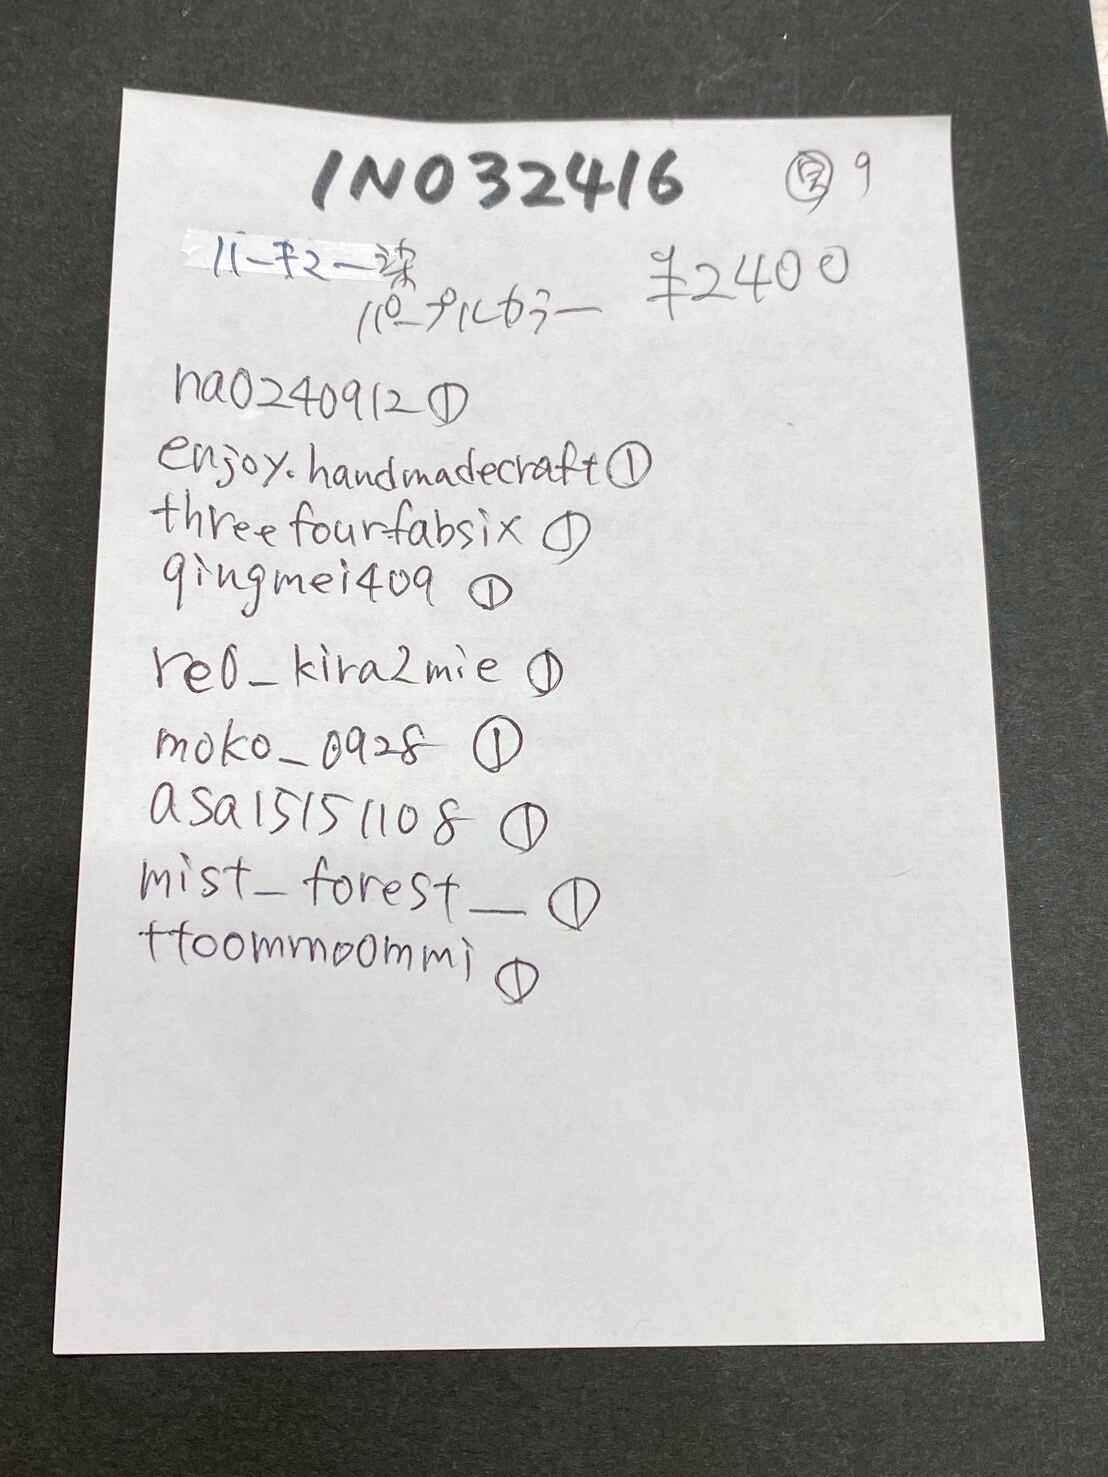 INO32416
9
染
パープルカラー ¥2400
na0240912①
enjoy.handmadecraft①
threefourfabsix①
qingmei409①
re0_kira2mie①
moko_0928①
asa15151108①
mist_forest__①
ttoommoo0mmi①